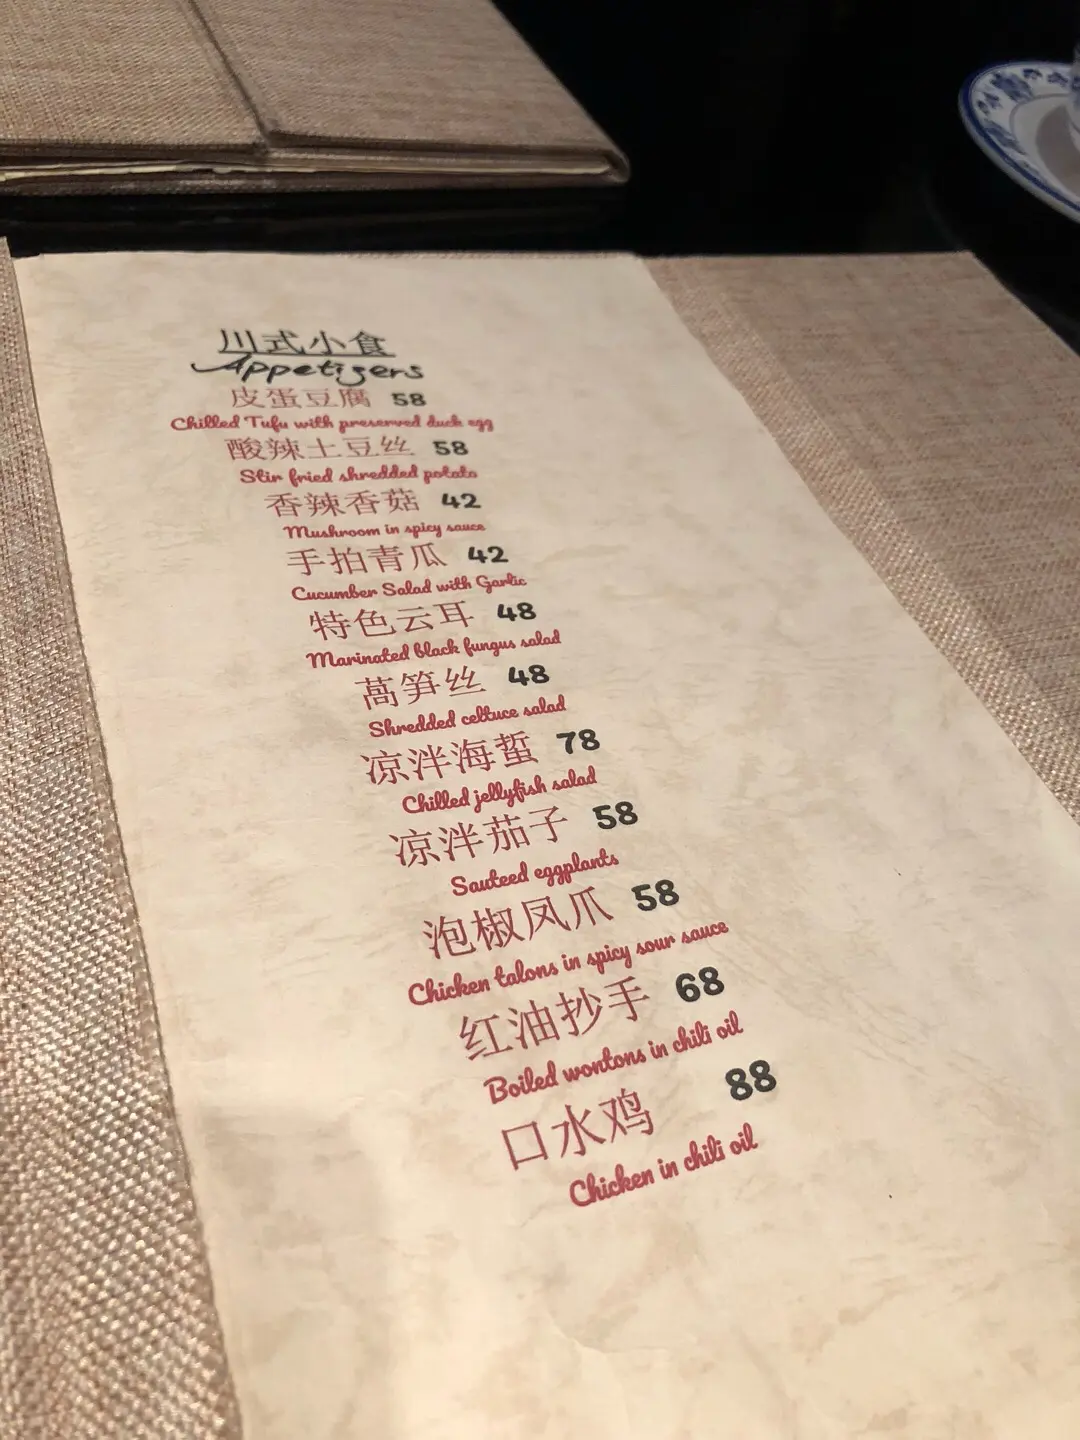 川式小食
Appetizers
皮蛋豆腐 58
Chilled Tufu with preserved duck egg
酸辣土豆丝 58
Stir fried shredded potato
香辣香菇 42
Mushroom in spicy sauce
手拍青瓜 42
Cucumber Salad with Garlic
特色云耳 48
Marinated black fungus salad
萵笋丝 48
Shredded celtuce salad
凉泮海蜇 78
Chilled jellyfish salad
凉泮茄子 58
Sauteed eggplants
泡椒凤爪 58
Chicken talons in spicy sour sauce
红油抄手 68
Boiled wontons in chili oil
口水鸡 88
Chicken in chili oil